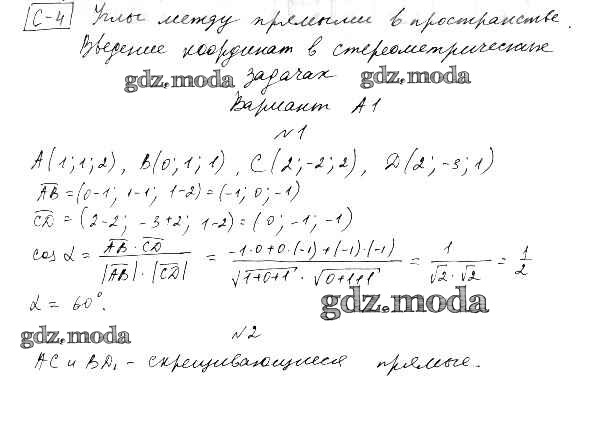 С-4 Углы между прямыми в пространстве.
Введение координат в стереометрических
gdz.moda задачах gdz.moda
Вариант А1
№1
A(1; 1; 2), B(0; 1; 1), C(2; -2; 2), D(2; -3; 1)
AB = (0-1; 1-1; 1-2) = (-1; 0; -1)
CD = (2-2; -3+2; 1-2) = (0; -1; -1)
cos α = AB · CD / |AB| · |CD| = -1·0+0·(-1)+(-1)·(-1) / √1+0+1 · √0+1+1 = 1 / √2 · √2 = 1/2
α = 60°.
gdz.moda
gdz.moda №2
AC и BD₁ - скрещивающиеся прямые.